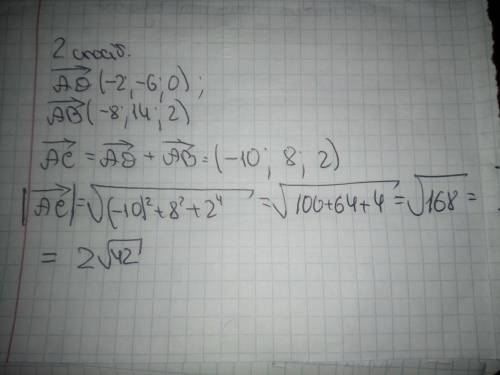 2 способ.
AD (-2; -6; 0);
AB (-8; 14; 2)
AC = AD + AB = (-10; 8; 2)
|AC| = √(-10)² + 8² + 2⁴ = √100+64+4 = √168 =
= 2√42